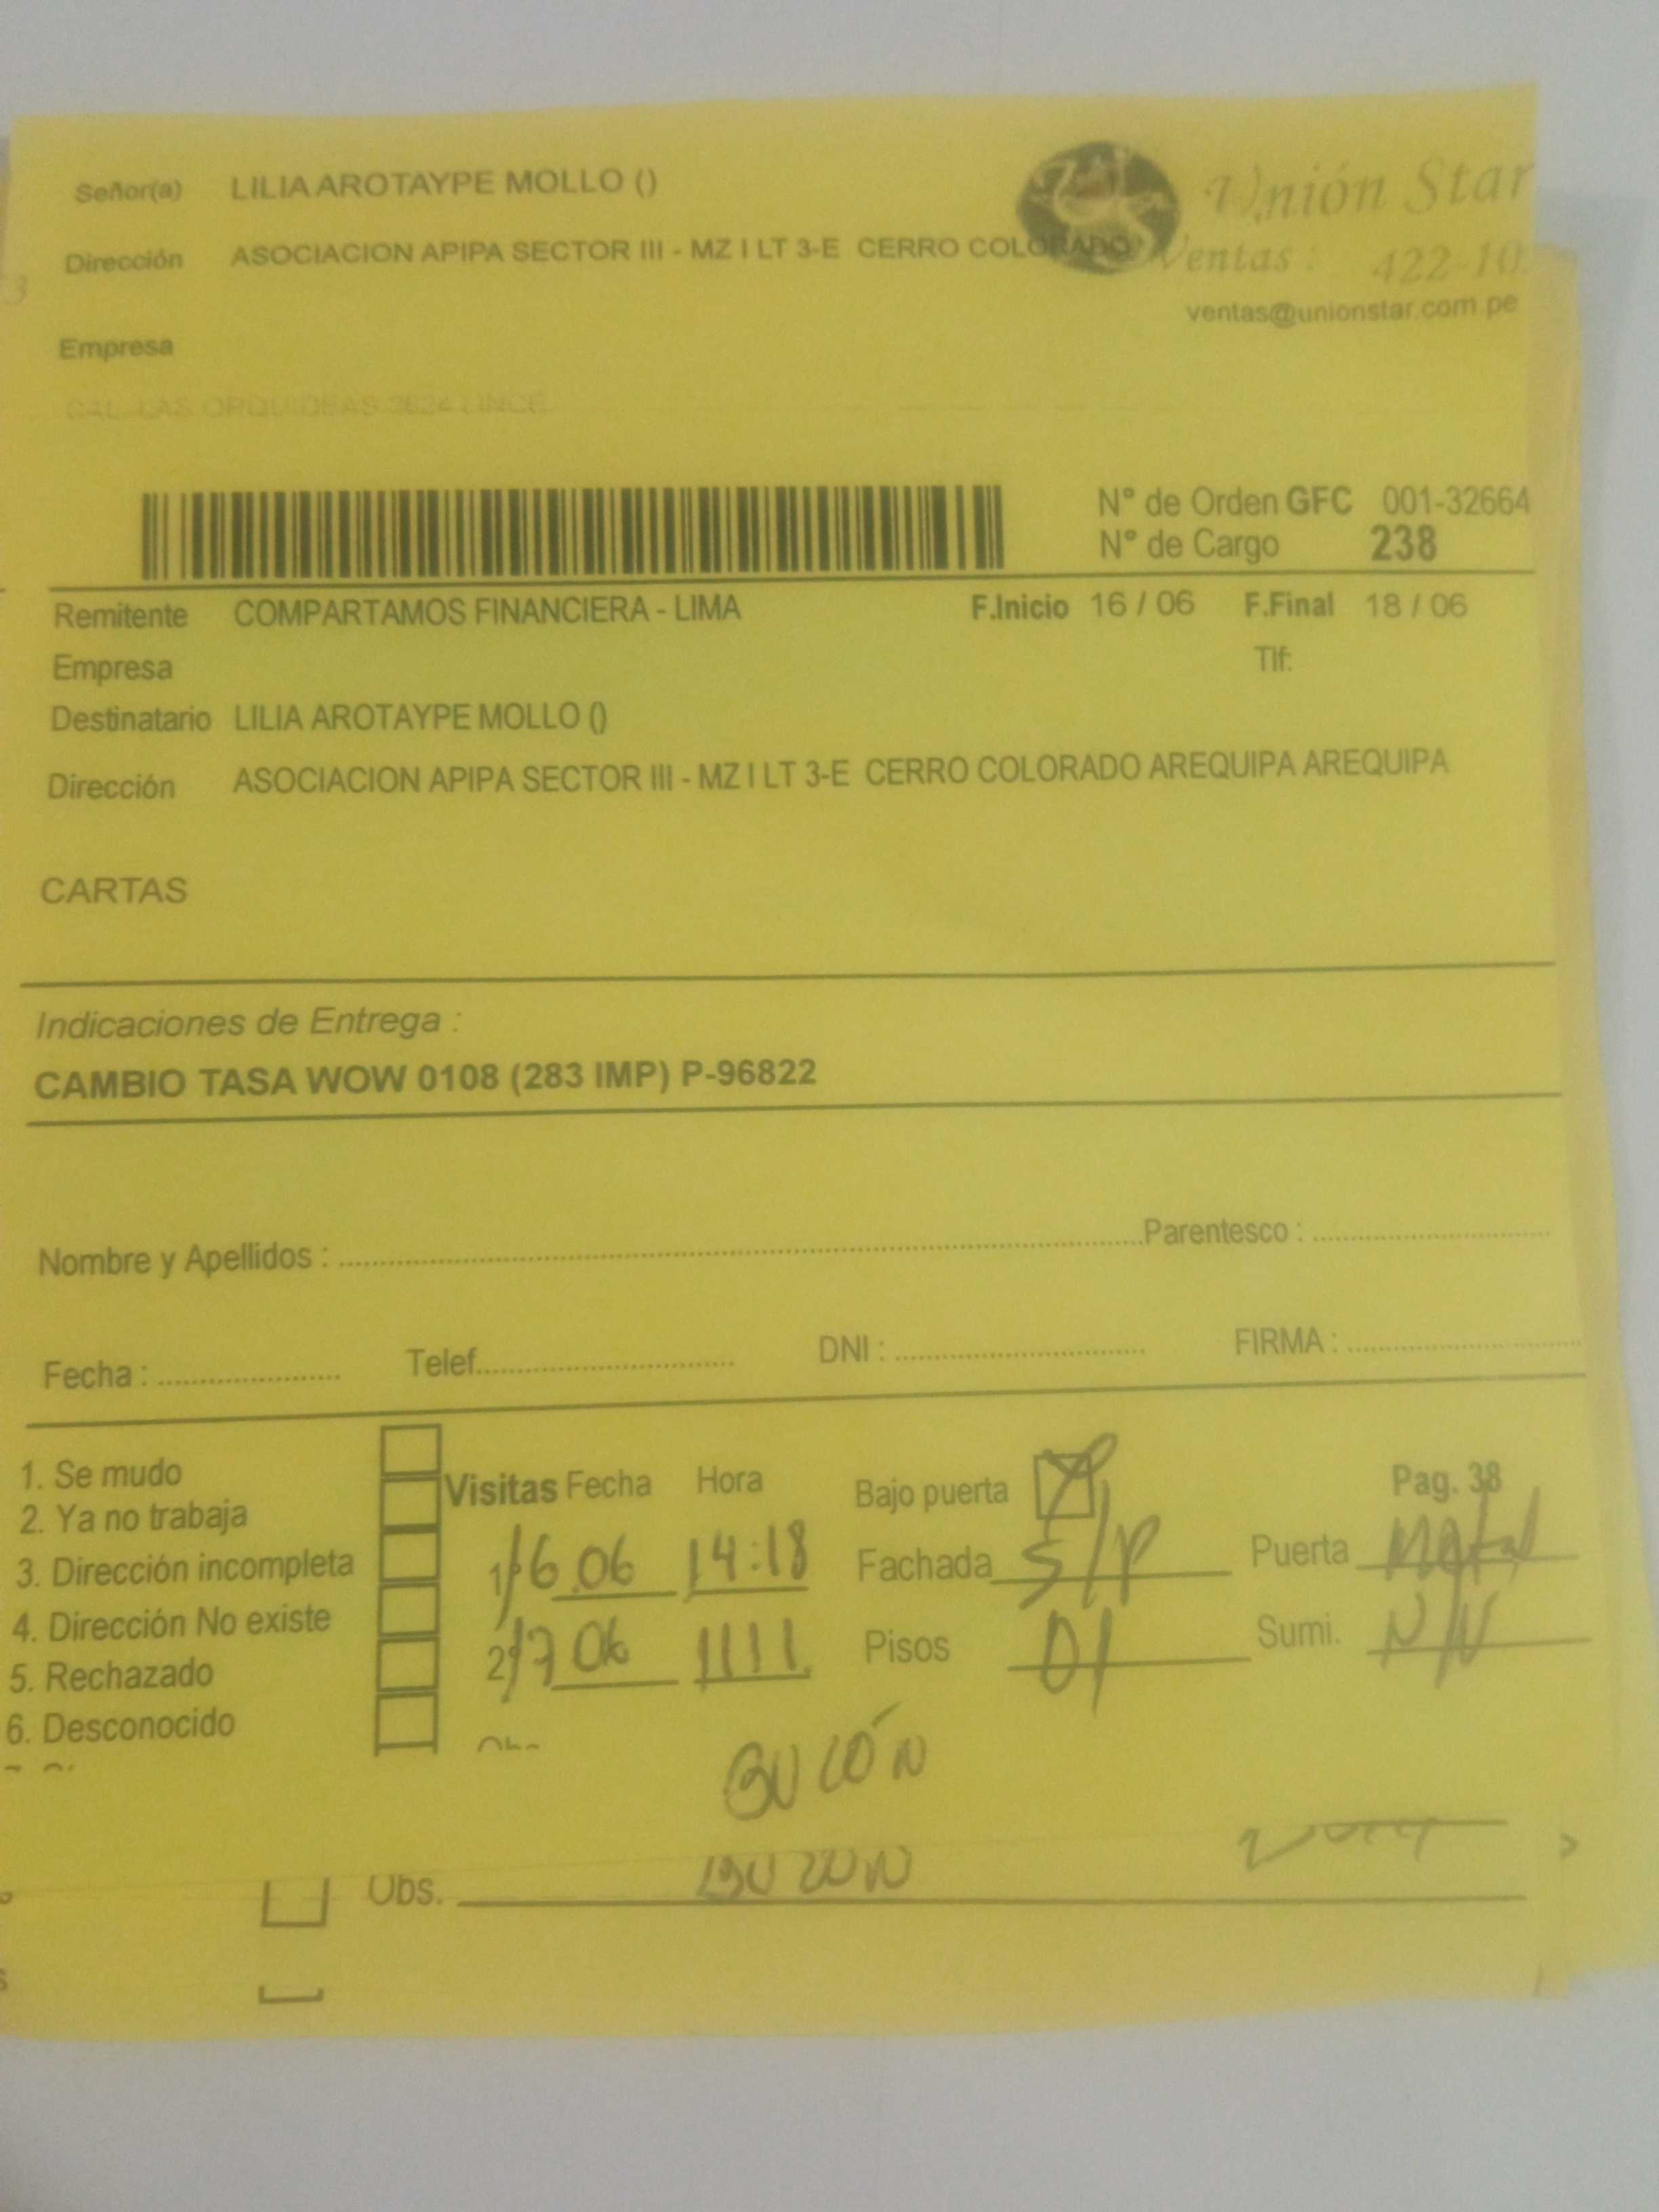 Señor(a) LILIA AROTAYPE MOLLO ()
Unión Star
Dirección ASOCIACION APIPA SECTOR III - MZ I LT 3-E CERRO COLORADO
Ventas: 422-10
ventas@unionstar.com.pe
Empresa
CAL. LAS ORQUIDEAS LINCE
Nº de Orden GFC 001-32664
Nº de Cargo 238
Remitente COMPARTAMOS FINANCIERA - LIMA F.Inicio 16 / 06 F.Final 18 / 06
Empresa Tlf:
Destinatario LILIA AROTAYPE MOLLO ()
Dirección ASOCIACION APIPA SECTOR III - MZ I LT 3-E CERRO COLORADO AREQUIPA AREQUIPA
CARTAS
Indicaciones de Entrega :
CAMBIO TASA WOW 0108 (283 IMP) P-96822
Nombre y Apellidos : Parentesco :
Fecha : Telef. DNI : FIRMA :
1. Se mudo
2. Ya no trabaja
3. Dirección incompleta
4. Dirección No existe
5. Rechazado
6. Desconocido
Visitas Fecha Hora
16 06 14:18
17 06 1111
Bajo puerta Pag. 38
Fachada S/P Puerta Metal
Pisos 01 Sumi. N/N
BUZÓN
Obs. BUZON